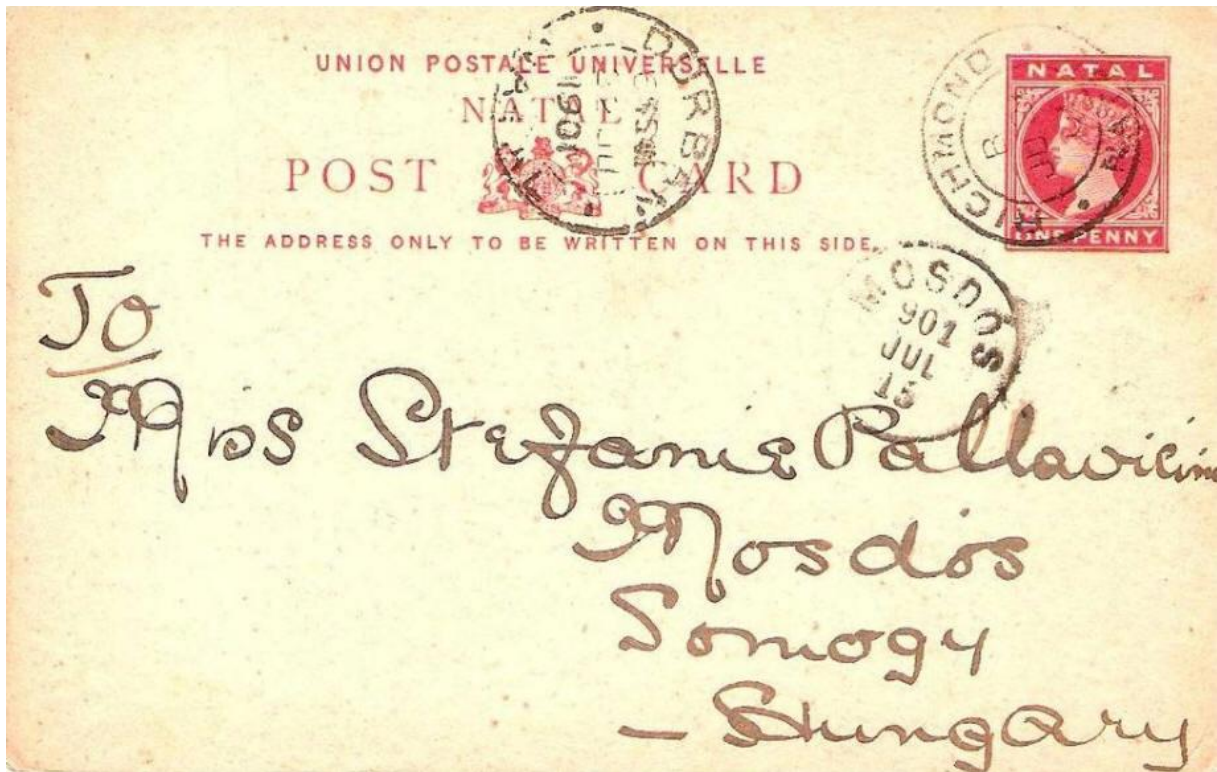 UNION POSTALE UNIVERSELLE
NATAL
POST CARD
THE ADDRESS ONLY TO BE WRITTEN ON THIS SIDE.
NATAL
ONE PENNY
RICHMOND
DURBAN
1901
MOSDÓS
901
JUL
15
To
Miss Stefanie Pallavicini
Mosdós
Somogy
- Hungary